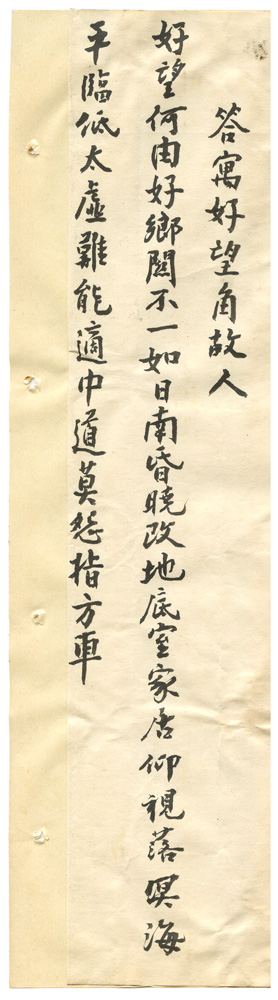 答寓好望角故人
好望何由好鄉關不一如日南昏曉改地底室家居仰視落溟海
平臨低太虛難能適中道莫怨指方車